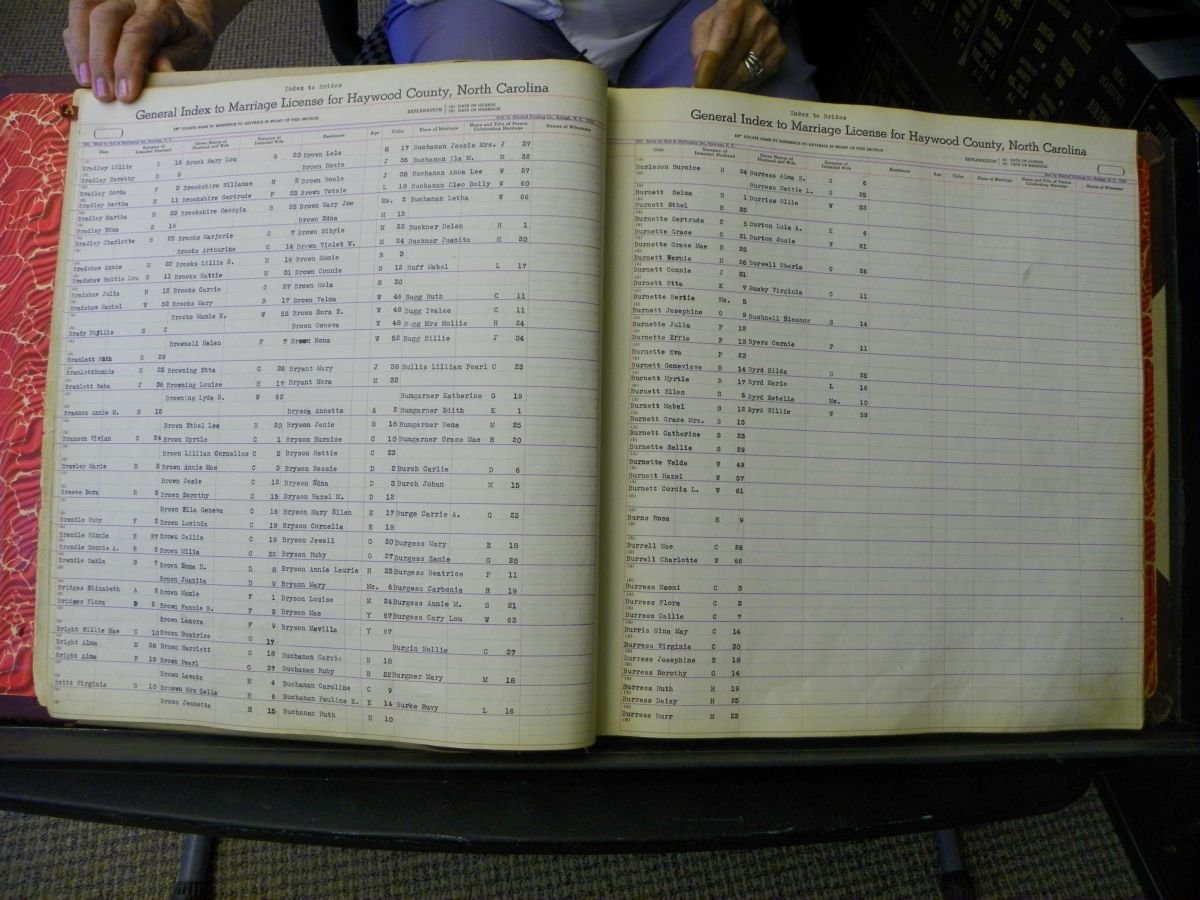 Index to Brides
General Index to Marriage License for Haywood County, North Carolina
EXPLANATION (A) DATE OF LICENSE (B) DATE OF MARRIAGE
Date
Surname of Intended Husband
Given Names of Husband and Wife
Surname of Intended Wife
Residence
Age
Color
Place of Marriage
Name and Title of Person Celebrating Marriage
Names of Witnesses
Bradley Lillie C 16
Bradley Dorothy D 6
Bradley Gorda F 3
Bradley Bertha H 11
Bradley Martha M 23
Bradley Edna S 19
Bradley Charlotte S 25
Bradshaw Annie M 22
Bradshaw Hattie Lou R 11
Bradshaw Julia R 12
Bradshaw Rachel W 52
Brady Phyllis S 2
Bramlett Ruth G 29
BramlettBonnie H 25
Bramlett Reba J 26
Brannon Annie M. S 15
Branson Vivian G 24
Brawley Marie E 3
Breece Dora R 5
Brendle Ruby F 2
Brendle Minnie H 27
Brendle Bonnie A. R 5
Brendle Oakla S 7
Bridges Elizabeth A 2
Bridges Flora B 2
Bright Willie Mae C 10
Bright Alma M 28
Bright Alma P 18
Britt Virginia B 10
Brock Mary Lou G 20
Brookshire Willamae H 2
Brookshire Gertrude P 23
Brookshire Georgia S 25
Brooks Marjorie C 7
Brooks Arthurine C 14
Brooks Lillie B. H 16
Brooks Hattie M 21
Brooks Carrie O 27
Brooks Mary R 17
Brooks Mamie E. W 53
Brownell Helen F 7
Browning Etta C 25
Browning Louise H 17
Browning Lyda B. W 63
Brown Ethel Lee B 20
Brown Myrtle C 1
Brown Lillian Cornelius C 2
Brown Annie Mae C 3
Brown Josie C 12
Brown Dorothy C 15
Brown Ella Geneva C 16
Brown Lucinda C 19
Brown Callie C 19
Brown Milia C 22
Brown Emma H. D 8
Brown Juanita D 9
Brown Mamie F 1
Brown Fannie B. F 3
Brown Lenora F 9
Brown Beatrice G 17
Brown Harriett G 18
Brown Pearl G 27
Brown Lavada H 4
Brown Mrs Zella H 6
Brown Jeanette H 15
Brown Lela H 17
Brown Roxie J 36
Brown Rosie J 38
Brown Votsie L 18
Brown Mary Joe Mc. 2
Brown Edna M 13
Brown Sibyle M 22
Brown Violet W. M 24
Brown Mamie R 3
Brown Connie S 12
Brown Nola S 30
Brown Velma W 46
Brown Dora E. W 48
Brown Geneva W 48
Brown Nona W 52
Bryant Mary J 28
Bryant Nora M 32
Bryson Annette A 2
Bryson Janie B 18
Bryson Burnice C 10
Bryson Hettie C 23
Bryson Dessie D 2
Bryson Edna D 3
Bryson Hazel M. D 12
Bryson Mary Ellen E 17
Bryson Cornelia E 18
Bryson Jewell G 20
Bryson Ruby G 27
Bryson Annie Laurie H 23
Bryson Mary Mc. 6
Bryson Louise M 24
Bryson Mae Y 67
Bryson Mavilla Y 67
Buchanan Carrie B 18
Buchanan Ruby B 22
Buchanan Caroline C 9
Buchanan Pauline E. E 14
Buchanan Ruth H 10
Buchanan Jessie Mrs. J 37
Buchanan Ila M. M 32
Buchanan Anna Lee W 57
Buchanan Cleo Dolly W 60
Buchanan Letha W 66
Buckner Helen H 1
Buckner Juanita H 20
Buff Mabel L 17
Bugg Ruth C 11
Bugg Ivalee C 11
Bugg Mrs Mollie H 24
Bugg Billie J 34
Bullis Lilliam Pearl C 23
Bumgarner Katherine G 19
Bumgarner Edith K 1
Bumgarner Rena M 25
Bumgarner Grace Mae R 20
Burch Carlie D 6
Burch Johan M 15
Burge Carrie A. G 23
Burgess Mary E 18
Burgess Zemie G 28
Burgess Beatrice P 11
Burgess Carbenia R 19
Burgess Annie M. S 21
Burgess Cary Lou W 63
Burgin Nellie C 27
Burgner Mary M 18
Burke Ruvy L 16
Index to Brides
General Index to Marriage License for Haywood County, North Carolina
EXPLANATION (A) DATE OF LICENSE (B) DATE OF MARRIAGE
Date
Surname of Intended Husband
Given Names of Husband and Wife
Surname of Intended Wife
Residence
Age
Color
Place of Marriage
Name and Title of Person Celebrating Marriage
Names of Witnesses
Burleson Burnice B 24
Burnett Selma R 1
Burnett Ethel B 25
Burnette Gertrude C 5
Burnette Grace C 21
Burnett Grace Mae H 25
Burnett Wernis H 26
Burnett Connie J 31
Burnett Etta K 7
Burnette Bertie Mc. 5
Burnett Josephine O 9
Burnette Julia P 12
Burnette Effie P 13
Burnette Eva P 23
Burnett Genevieve R 14
Burnett Myrtle R 17
Burnett Ellen S 6
Burnett Mabel S 12
Burnett Grace Mrs. S 15
Burnett Catherine S 23
Burnette Sallie S 29
Burnette Velda W 49
Burnett Hazel W 57
Burnett Cordia L. W 61
Burns Rosa S 9
Burrell Mae C 26
Burrell Charlotte W 66
Burress Naomi C 3
Burress Flora C 3
Burress Callie C 7
Burris Nina May C 14
Burress Virginia C 30
Burress Josephine E 18
Burress Dorothy G 14
Burress Ruth H 19
Burress Daisy H 25
Burress Burr M 23
Burress Alma E. S 6
Burress Hettie L. S 25
Burriss Ollie W 53
Burton Lula A. K 4
Burton Susie W 61
Burwell Cheria C 26
Busby Virginia C 11
Bushnell Eleanor S 14
Byers Cornie P 11
Byrd Hilda G 25
Byrd Marie L 16
Byrd Estella Mc. 10
Byrd Billie W 59
1967